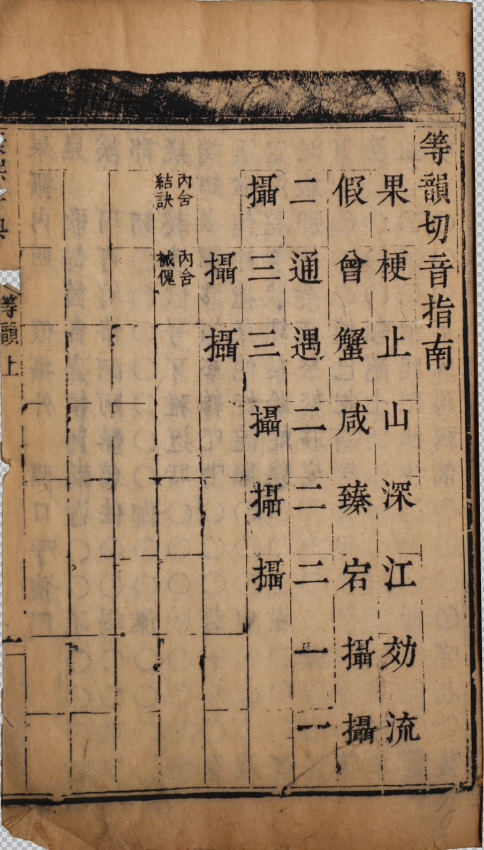 等韻切音指南
果梗止山深江効流
假曾蟹咸臻宕攝攝
二通遇二二二一一
攝三三攝攝攝
攝攝
內含
結訣
內含
等韻上